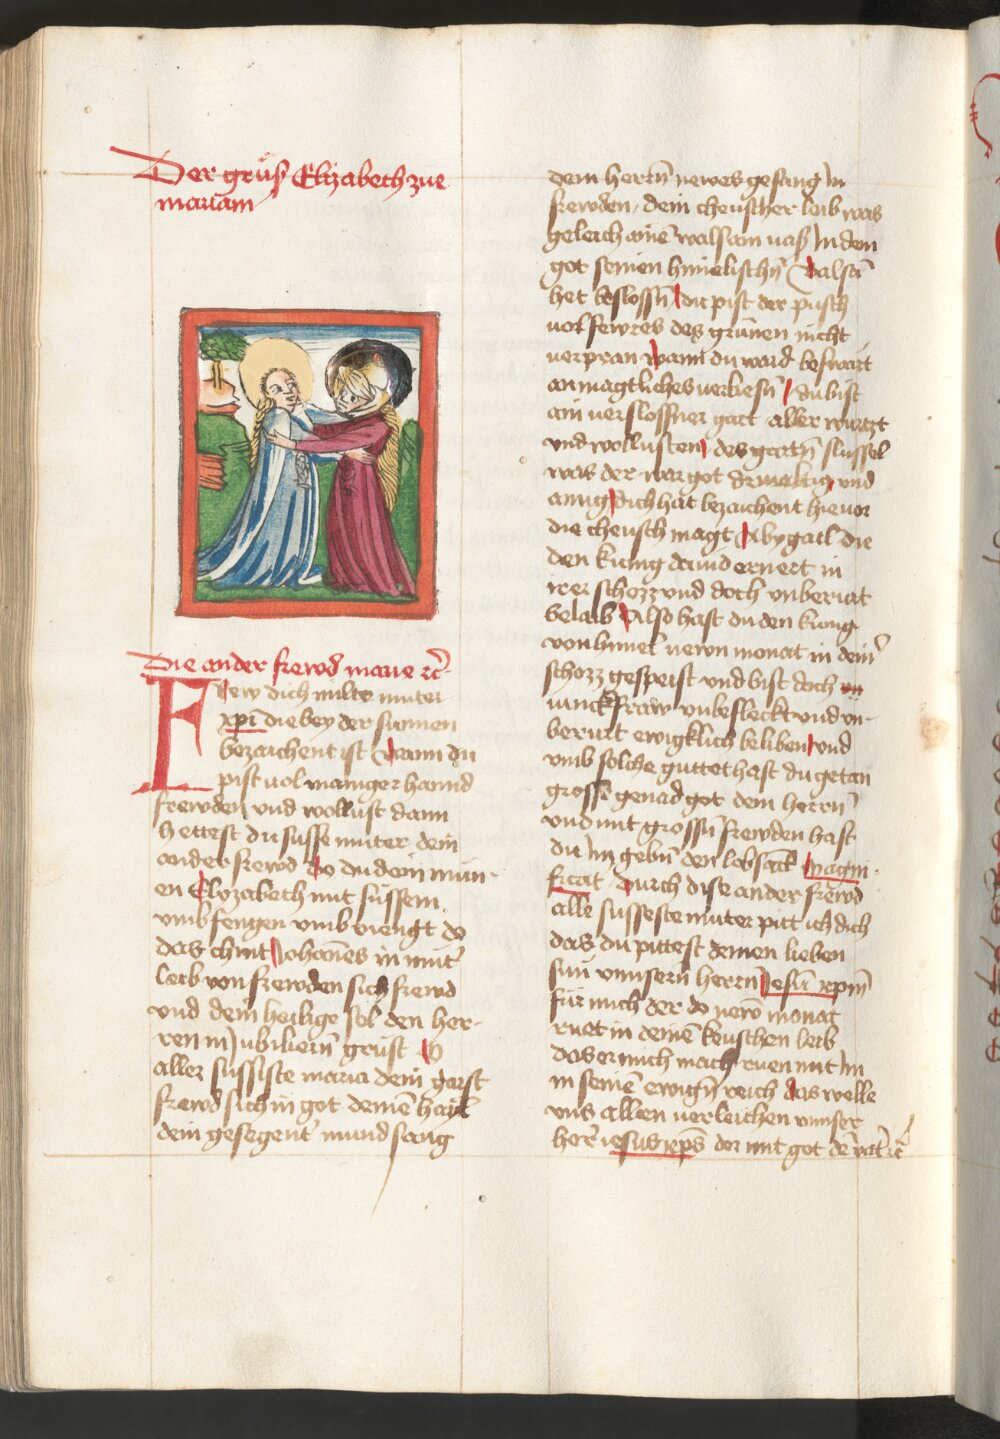 Der grüß Elyzabeth zue
mariam
Die ander frewd marie ꝛc̄
Frew dich milte muter
xp̄i die bey der sunnen
bezaichent ist wann du
pist uol maniger hannd
frewden vnd wollust dann
hettest du susse muter dein
ander frewd do du dein mum-
en Elyzabeth mit süssem
vmbfengen vmbviengt do
das chint Johannes in muter
leib von frewden sich frewd
vnd dein heilige sel den her-
ren in Jubiliern grüst O
aller süssiste maria dein gaist
frewd sich in got deinē hayl
dein gesegent mund sang
dem herrn̄ newes gesang In
frewden. dein cheuscher leib was
geleich ainē walsam uaß In dem
got seinen himelischn̄ walsam̄
het beslossn̄ du pist der pusch
uol fewres des grünen nicht
verpran wann du ward beswärt
an magtliches verliesn̄ du bist
ain verslossner gart aller wurtzt
vnd wollusten des gartn̄ slussel
was der war got drivaltig vnd
ainig Dich hat bezaichent hieuor
die cheusch magt Abygail die
den kunig dauid ernert in
irer schozz vnd doch vnberürt
belaib Also hast du den kunig
von himel newn monat in deinr̄
schozz gespeist vnd bist doch
iunckfraw vnbefleckt vnd vn-
berürt ewigklich beliben vnd
vmb solche guttet hast du getan
grosse genad got dem herrn̄
vnd mit grossn̄ frewden hast
du Im gebn̄ den lobsāck Magni-
ficat. Durch dise ander frewd
alle susseste muter pitt ich dich
das du pittest deinen lieben
sun vnnsern̄ herrn̄ Jesū xpm̄
für mich der do newn monat
ruet in deinē keuschen leib
das er mich mach ruen mit Im
in seinē ewign̄ reich das welle
vns allen verleichen vnnser
herr̄ iesus xp̄s der mit got dē vatr̄ ꝛc̄